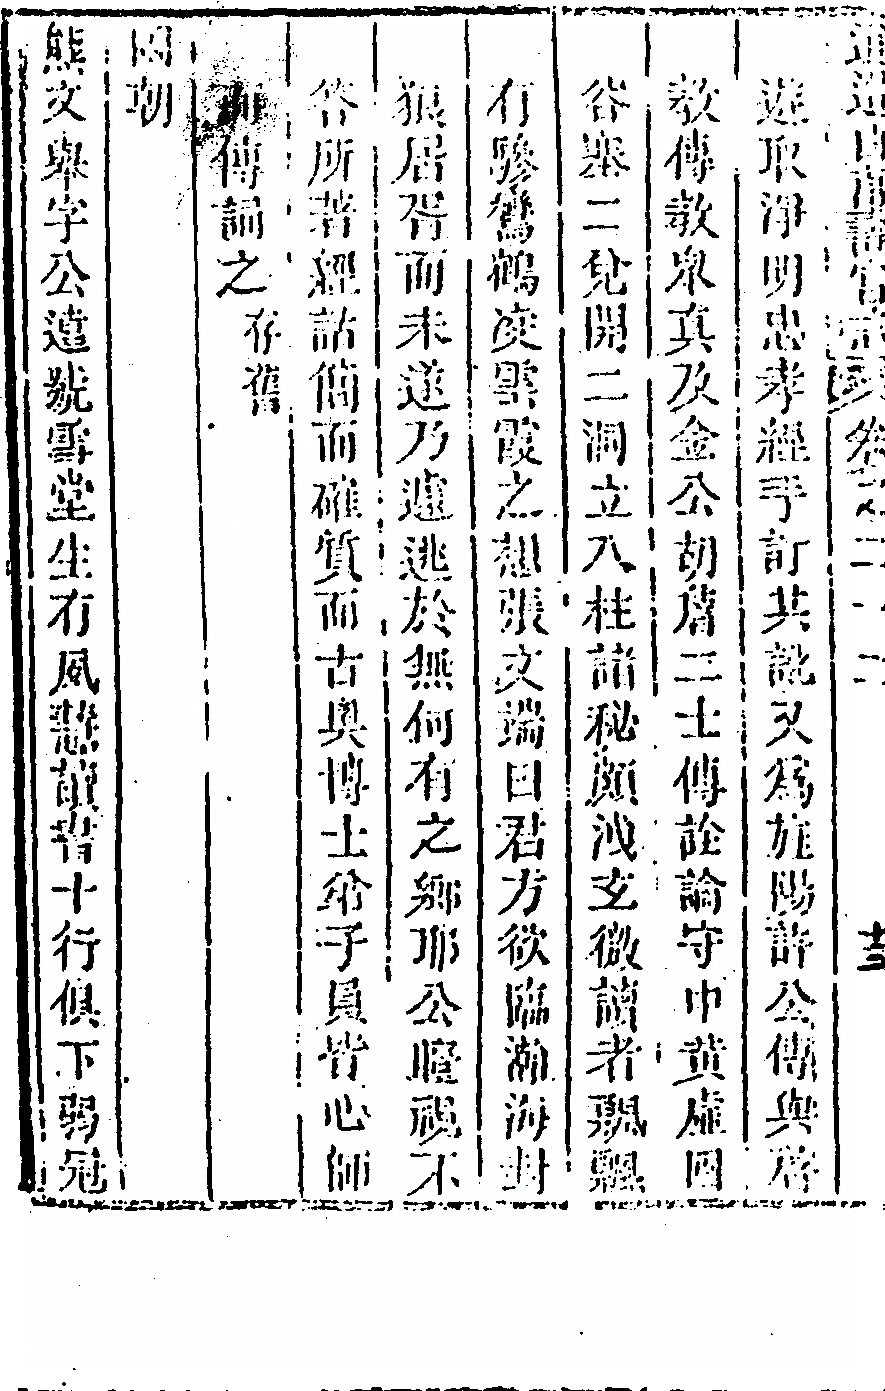 遊取淨明忠孝經手訂其訛又為旌陽許公傳與啓
教傳教衆真及金公胡詹二士傳詮論守中黃虛圓
谷舉二兌開二洞立八柱諸秘頗洩玄微讀者飄飄
有驂鸞鶴凌雲霞之想張文端曰君方欲臨瀚海封
狼居胥而未遂乃遽逃於無何有之鄉耶公瞪視不
答所著經詁簡而確質而古奧博士弟子員皆心師
而傳詞之 存舊
國朝
熊文舉字公遠號雪堂生有風慧讀書十行俱下弱冠